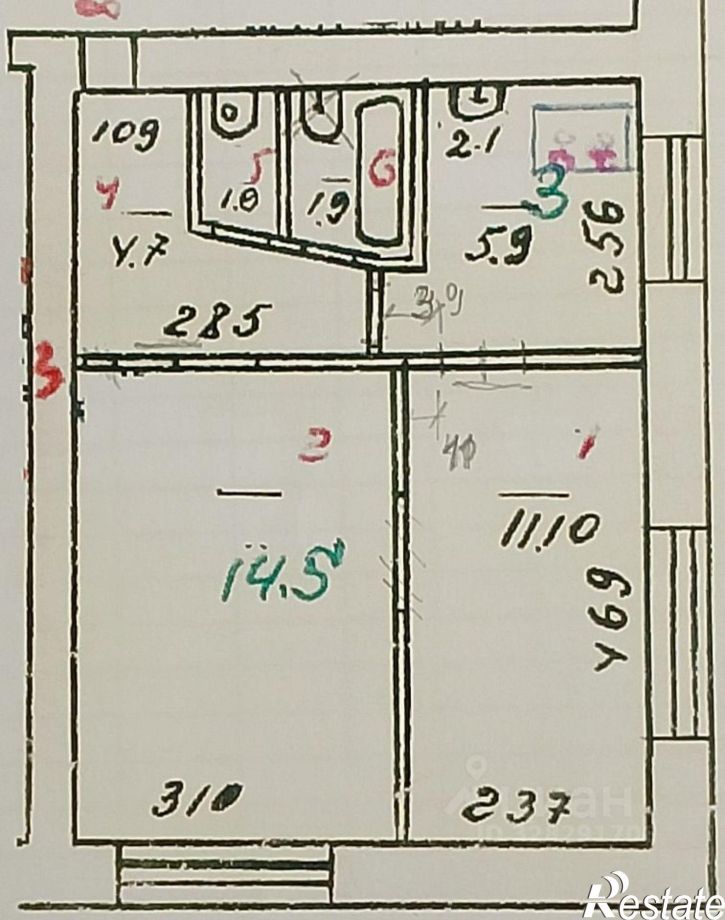 109
4
4.7
5
1.0
6
1.9
2.1
3
5.9
256
285
3
2
14.5
1
11.10
469
40
310
237
циан
Restate